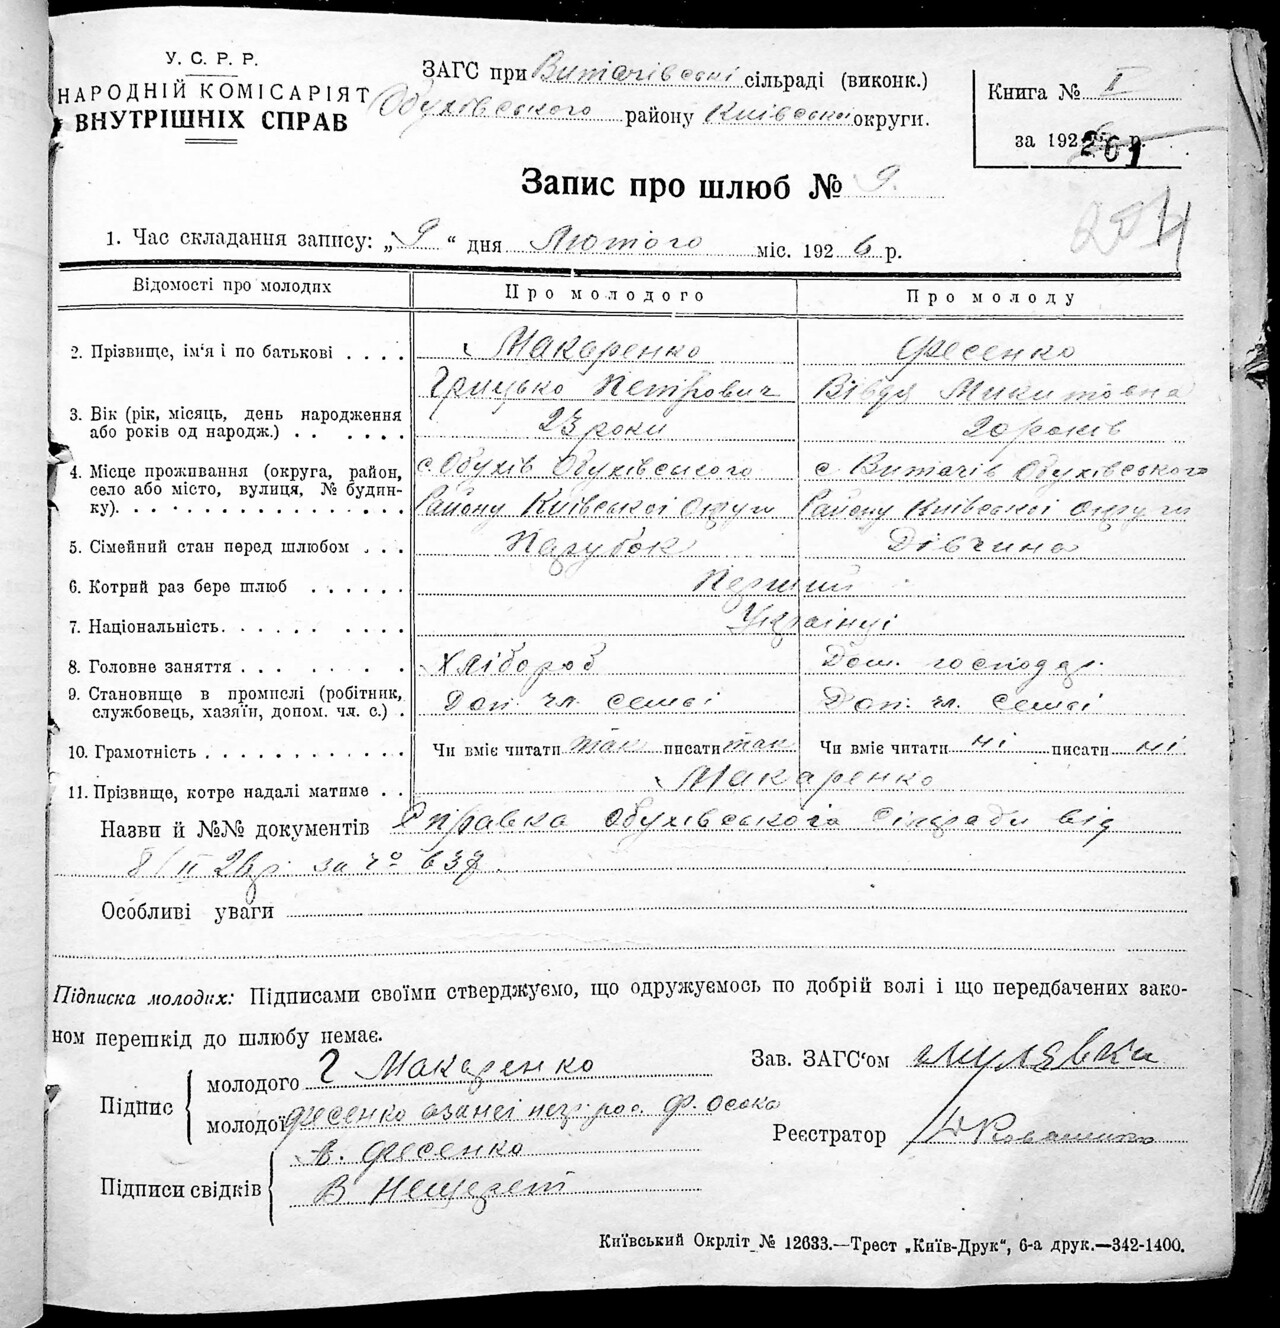 У. С. Р. Р.
НАРОДНІЙ КОМІСАРІЯТ
ВНУТРІШНІХ СПРАВ
ЗАГС при Витачівські сільраді (виконк.)
Обухівського району Київської округи.
Книга № I
за 1926 р.
261
Запис про шлюб № 9.
254
1. Час складання запису: „9“ дня Лютого міс. 1926 р.
Відомості про молодих
Про молодого
Про молоду
2. Прізвище, ім‘я і по батькові . . . .
Макаренко
Фесенко
Грицько Петрович
Вівдя Микитовна
3. Вік (рік, місяць, день народження
або років од народж.) . . . . . .
23 роки
20 років
4. Місце проживання (округа, район,
село або місто, вулиця, № будин-
ку). . . . . . . . . . . . . . . .
с. Обухів Обухівського
с. Витачів Обухівського
Району Київської Округи
Району Київської Округи
5. Сімейний стан перед шлюбом . . .
Парубок
Дівчина
6. Котрий раз бере шлюб . . . . . .
Перший
7. Національність. . . . . . . . . .
Українці
8. Головне заняття . . . . . . . . .
Хлібороб
Дом. господар.
9. Становище в промислі (робітник,
службовець, хазяїн, допом. чл. с.) .
Доп. чл. семьї
Доп. чл. семьї
10. Грамотність . . . . . . . . . . . .
Чи вміє читати так писати так
Чи вміє читати ні писати ні
11. Прізвище, котре надалі матиме . .
Макаренко
Назви й №№ документів Справка Обухівського Сілради від
8/II 26р. за Чо 637.
Особливі уваги
Підписка молодих: Підписами своїми стверджуємо, що одружуємось по добрій волі і що передбачених зако-
ном перешкід до шлюбу немає.
Підпис
молодого Г Макаренко
молодої Фесенко Ф. Осока
Зав. ЗАГС‘ом Мулявка
Реєстратор
Підписи свідків
А. Фесенко
В Нещерет
Київський Окрліт № 12633.—Трест „Київ-Друк“, 6-а друк.—342-1400.